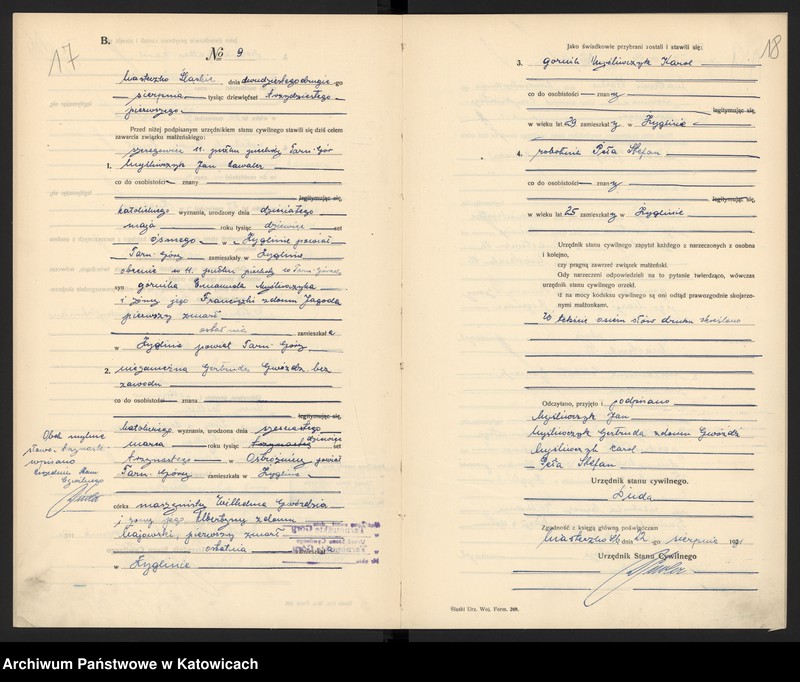 17
B.
№ 9
Miasteczko Śląskie, dnia dwudziestegodrugiego
sierpnia tysiąc dziewięćset trzydziestego
pierwszego.
Przed niżej podpisanym urzędnikiem stanu cywilnego stawili się dziś celem
zawarcia związku małżeńskiego:
szeregowiec 11. pułku piechoty Tarn. Gór
1. Myśliwczyk Jan kawaler
co do osobistości znany
legitymując się,
katolickiego wyznania, urodzony dnia
maja roku tysiąc dziewięć set
ósmego w Żyglinie powiat
Tarn. Góry zamieszkały w Żyglinie
obecnie w 11. pułku piechoty w Tarn. Górach
syn górnika Emanuela Myśliwczyka
i żony jego Franciszki z domu Jagoda
pierwszy zmarł
ostatnia zamieszkała
w Żyglinie powiat Tarn. Góry
2. niezamężna Gertruda Gwóźdź bez
zawodu
co do osobistości znana
legitymując się,
katolickiego wyznania, urodzona dnia szesnastego
marca roku tysiąc trzynastego dziewięć set
trzynastego w Ostrożnicy powiat
Tarn. Góry zamieszkała w Żyglinie
Obok mylnie
słowo trzynaste
wpisano
Urzędnik Stanu
Cywilnego
Duda
córka maszynisty Wilhelma Gwoździa
i żony jego Albertyny z domu
Majewski, pierwszy zmarł
ostatnia
w Żyglinie
18
Jako świadkowie przybrani zostali i stawili się:
3. górnik Myśliwczyk Karol
co do osobistości znany
legitymując się,
w wieku lat 29 zamieszkały w Żyglinie
4. robotnik Peta Stefan
co do osobistości znany
legitymując się,
w wieku lat 25 zamieszkały w Żyglinie
Urzędnik stanu cywilnego zapytał każdego z narzeczonych z osobna
i kolejno,
czy pragną zawrzeć związek małżeński.
Ody narzeczeni odpowiedzieli na to pytanie twierdząco, wówczas
urzędnik stanu cywilnego orzekł,
iż na mocy kodeksu cywilnego są oni odtąd prawozgodnie skojarzo-
nymi małżonkami.
W tekście osiem słów druku skreślono
Odczytano, przyjęto i podpisano
Myśliwczyk Jan
Myśliwczyk Gertruda z domu Gwóźdź
Myśliwczyk Karol
Peta Stefan
Urzędnik stanu cywilnego.
Duda
Zgodność z księgą główną poświadczam
Miasteczko Śl. dnia 22 -go sierpnia 1931
Urzędnik Stanu Cywilnego
Duda
Śląski Urz. Woj. Form. 269.
Archiwum Państwowe w Katowicach